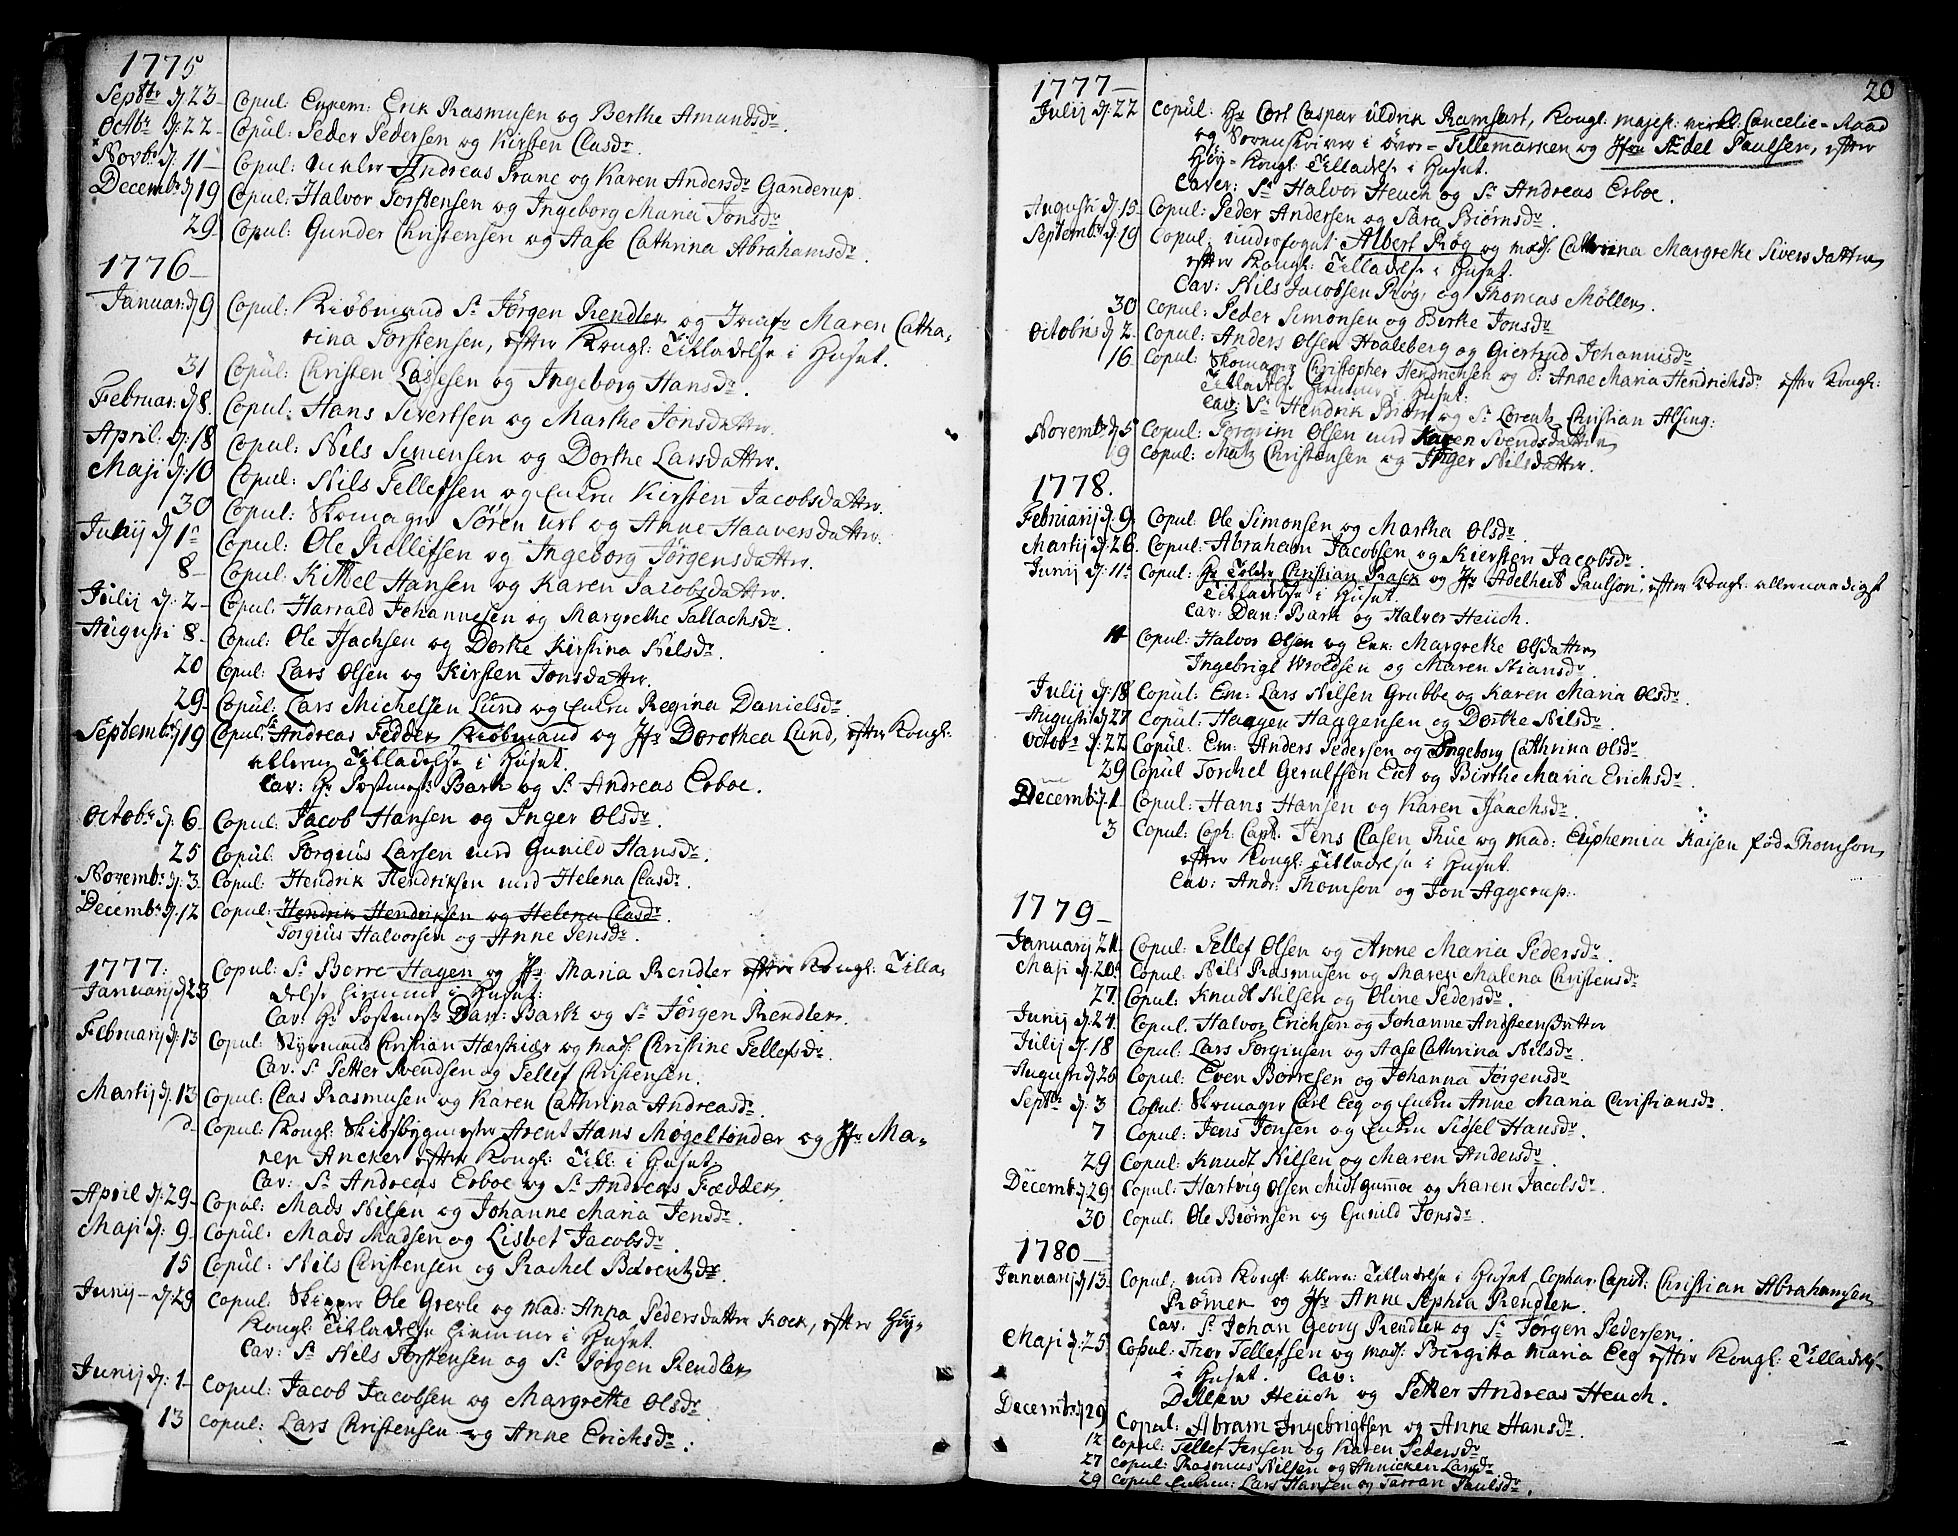 1775
Septbr d. 23 Copul: Enkem: Erik Rasmusen og Berthe Amundsdr.
Octbr d: 22 Copul: Peder Pedersen og Kirsten Clasdr.
Novbr d: 11 Copul: Andreas Prane og Karen Andersdr Ganderup.
Decembr d 19 Copul: Halvor Torstensen og Ingeborg Maria Jonsdr
29 Copul: Gunder Christensen og Aase Cathrina Abrahamsdr.
1776
Januar: d 9 Copul: Kiøbmand Sr Jørgen Rendler og Jomfr Maren Catha-
rina Torstensen, efter Kongl: Tilladelse i Huset.
31 Copul: Christen Lassesen og Ingeborg Hansdr.
Februar: d 8. Copul: Hans Sivertsen og Marthe Jonsdatter.
April: d: 18 Copul: Nils Simensen og Dorthe Larsdatter.
Maji d: 10 Copul: Nils Tellefsen og Enken Kirsten Jacobsdatter.
30 Copul: Skomager Søren Urt og Anne Haaversdatter.
Junij d 1 Copul: Ole Kellefsen og Ingeborg Jørgensdatter.
8 Copul: Kittel Hansen og Karen Jacobsdatter.
Julij d: 2 Copul: Harrald Johannesen og Margrethe Tallachsdr.
Augusti 8 Copul: Ole Isachsen og Dorthe Kirstina Nilsdr.
20 Copul: Lars Olsen og Kirsten Jonsdatter.
29 Copul: Lars Michelsen Lund og Enken Regina Danielsdr.
Septembr d 19 Copul: Sr Andreas Fedder Kiøbmand og Jfr Dorothea Lund, efter Kongl:
allern Tilladelse i Huset.
Cav: Hr Postmestr Bark og Sr Andreas Erboe.
Octobr d: 6 Copul: Jacob Hansen og Inger Olsdr.
25 Copul: Torgius Larsen med Gunild Hansdr.
Novembr d: 3 Copul: Hendrik Hendriksen med Helena Clasdr.
Decembr d: 12 Copul: Hendrik Hendriksen og Helena Clasdr.
Torgius Halvorsen og Anne Jensdr.
1777:
Januarij d 23 Copul: Sr Borre Hagen og Jfr Maria Rendler efter Kongl: Tilla-
delse hiemme i Huset:
Cav: Hr Postmestr Dan: Bark og Sr Jørgen Rendler.
Februarij d: 13 Copul: Styrmand Christian Hærskiær og Mad: Christine Tellefsdr.
Cav: Sr Petter Svendsen og Tellef Christensen.
Martij d: 13 Copul: Clas Rasmusen og Karen Cathrina Andreasdr.
d- Copul: Kongl: Skibsbygmester Arent Hans Møgeltønder og Jfr Ma-
ren Ancker efter Kongl: Till: i Huset
Cav: Sr Andreas Erboe og Sr Andreas Fædder.
April d: 29 Copul: Mads Nilsen og Johanne Maria Jensdr.
Maji d: 9 Copul: Mads Madsen og Lisbet Jacobsdr.
15 Copul: Nils Christensen og Rachel Barentzdr.
Junij d: 29 Copul: Skipper Ole Grevle og Mad: Anna Pedersdatter Kock, efter Høy-
Kongl: Tilladelse hiemme i Huset.
Cav: Sr Nils Torstensen og Sr Jørgen Rendler
Junij d: 1 Copul: Jacob Jacobsen og Margrethe Olsdr.
13 Copul: Lars Christensen og Anne Erichsdr.
20
1777
Julij d: 22 Copul: Hr Cort Caspar Uldrik Ramshart, Kongl: Majest: virkl. Cancelie-Raad
og Sorenskriver i Øvre-Tellemarken og Jfru Paulsen, efter
Høy-Kongl: Tilladelse i Huset.
Caver: Sr Halvor Heuch og Sr Andreas Erboe.
Augusti d: 15 Copul: Peder Andersen og Sara Biørnsdr
Septembr d 19 Copul: underfoget Albert Røg og Mad: Cathrina Margrethe Siversdatter
efter Kongl: Tilladelse i Huset.
Cav: Nils Jacobsen Røg, og Thomas Møller.
30 Copul: Peder Simonsen og Birthe Jonsdr
Octobris d 2. Copul: Anders Olsen Hoaleberg og Giertrud Johannisdr
16 Copul: Skomager Christopher Hendrichsen og Anne Maria Hendrichsdr efter Kongl:
Tilladelse hiemme i Huset:
Cav: Sr Hendrik Biørn og Sr Lorentz Christian Alsing:
Novembr d 5 Copul: Torgrim Olsen med Karen Svendsdatter
9 Copul: Matz Christensen og Inger Nilsdatter.
1778.
Februarij d: 9. Copul: Ole Simonsen og Martha Olsdr.
Martij d: 26. Copul: Abraham Jacobsen og Kiersten Jacobsdr.
Junij d: 11 Copul: Hr Tolder Christian Prasek og Jfr Adelheit Paulson, efter Kongl: allernaadigst
Tilladelse i Huset.
Cav: Dan: Bark og Halver Heuch.
14 Copul: Halvor Olsen og Enk: Margrethe Olsdatter
Ingebrigt Wroldsen og Maren Stiansdr.
Julij d: 18 Copul: Em: Lars Nilsen Grubbe og Karen Maria Olsdr.
Augusti d 27 Copul: Haagen Haggensen og Dorthe Nilsdr.
Octobr d: 22 Copul: Em: Anders Pedersen og Ingeborg Cathrina Olsdr
29 Copul Torchel Gerulfsen Eiet og Birthe Maria Erichsdr.
Decembr d: 1 Copul: Hans Hansen og Karen Isaachsdr.
3 Copul: Coph: Capt. Jens Clasen Thue og Mad: Euphemia Kaisen fød Thomson
efter Kongl: Tilladelse i Huset.
Cav: Andr: Thomson og Jon Aggerup.
1779
Januarij 21 Copul: Tellef Olsen og Anne Maria Pedersdr.
Maji d: 20 Copul: Nils Rasmusen og Maren Malena Christensdr
27 Copul: Knudt Nilsen og Oline Pedersdr.
Junij d: 24 Copul: Halvor Erichsen og Johanne Andsteensdatter
Julij d: 18 Copul: Lars Torginsen og Aase Cathrina Nilsdr.
Augusti d 26 Copul: Even Borresen og Johanna Jørgensdr
Septbr d: 3 Copul: Skomager Carl Eeg og Enken Anne Maria Christiansdr.
7 Copul: Jens Jonsen og Enken Sidsel Hansdr.
29 Copul: Knudt Nilsen og Maren Andersdr.
Decembr d 29 Copul: Hartvig Olsen Midtgummoe og Karen Jacobsdr.
30 Copul: Ole Biørnsen og Gunild Jonsdr.
1780
Januarij d 13. Copul: med Kongl: allern: Tilladelse i Huset Cophar: Capit: Christian Abrahamsen
Rømer og Jfr Anne Sophia Rendler.
Cav: Sr Johan Georg Rendler og Sr Jørgen Pedersen.
Maji d: 25 Copul: Thor Tellefsen og Mad: Birgitta Maria Eeg efter Kongl: Tilladelse
i Huset. Cav:
Ditlew Heuch og Petter Andreas Heuch.
Decembr d 29 Copul: Abram Ingebrigtsen og Anne Hansdr.
12 Copul: Tellef Jensen og Karen Pedersdr
27 Copul: Rasmus Nilsen og Annicken Larsdr
29 Copul Enkem: Lars Hansen og Tarran Paulsdr.